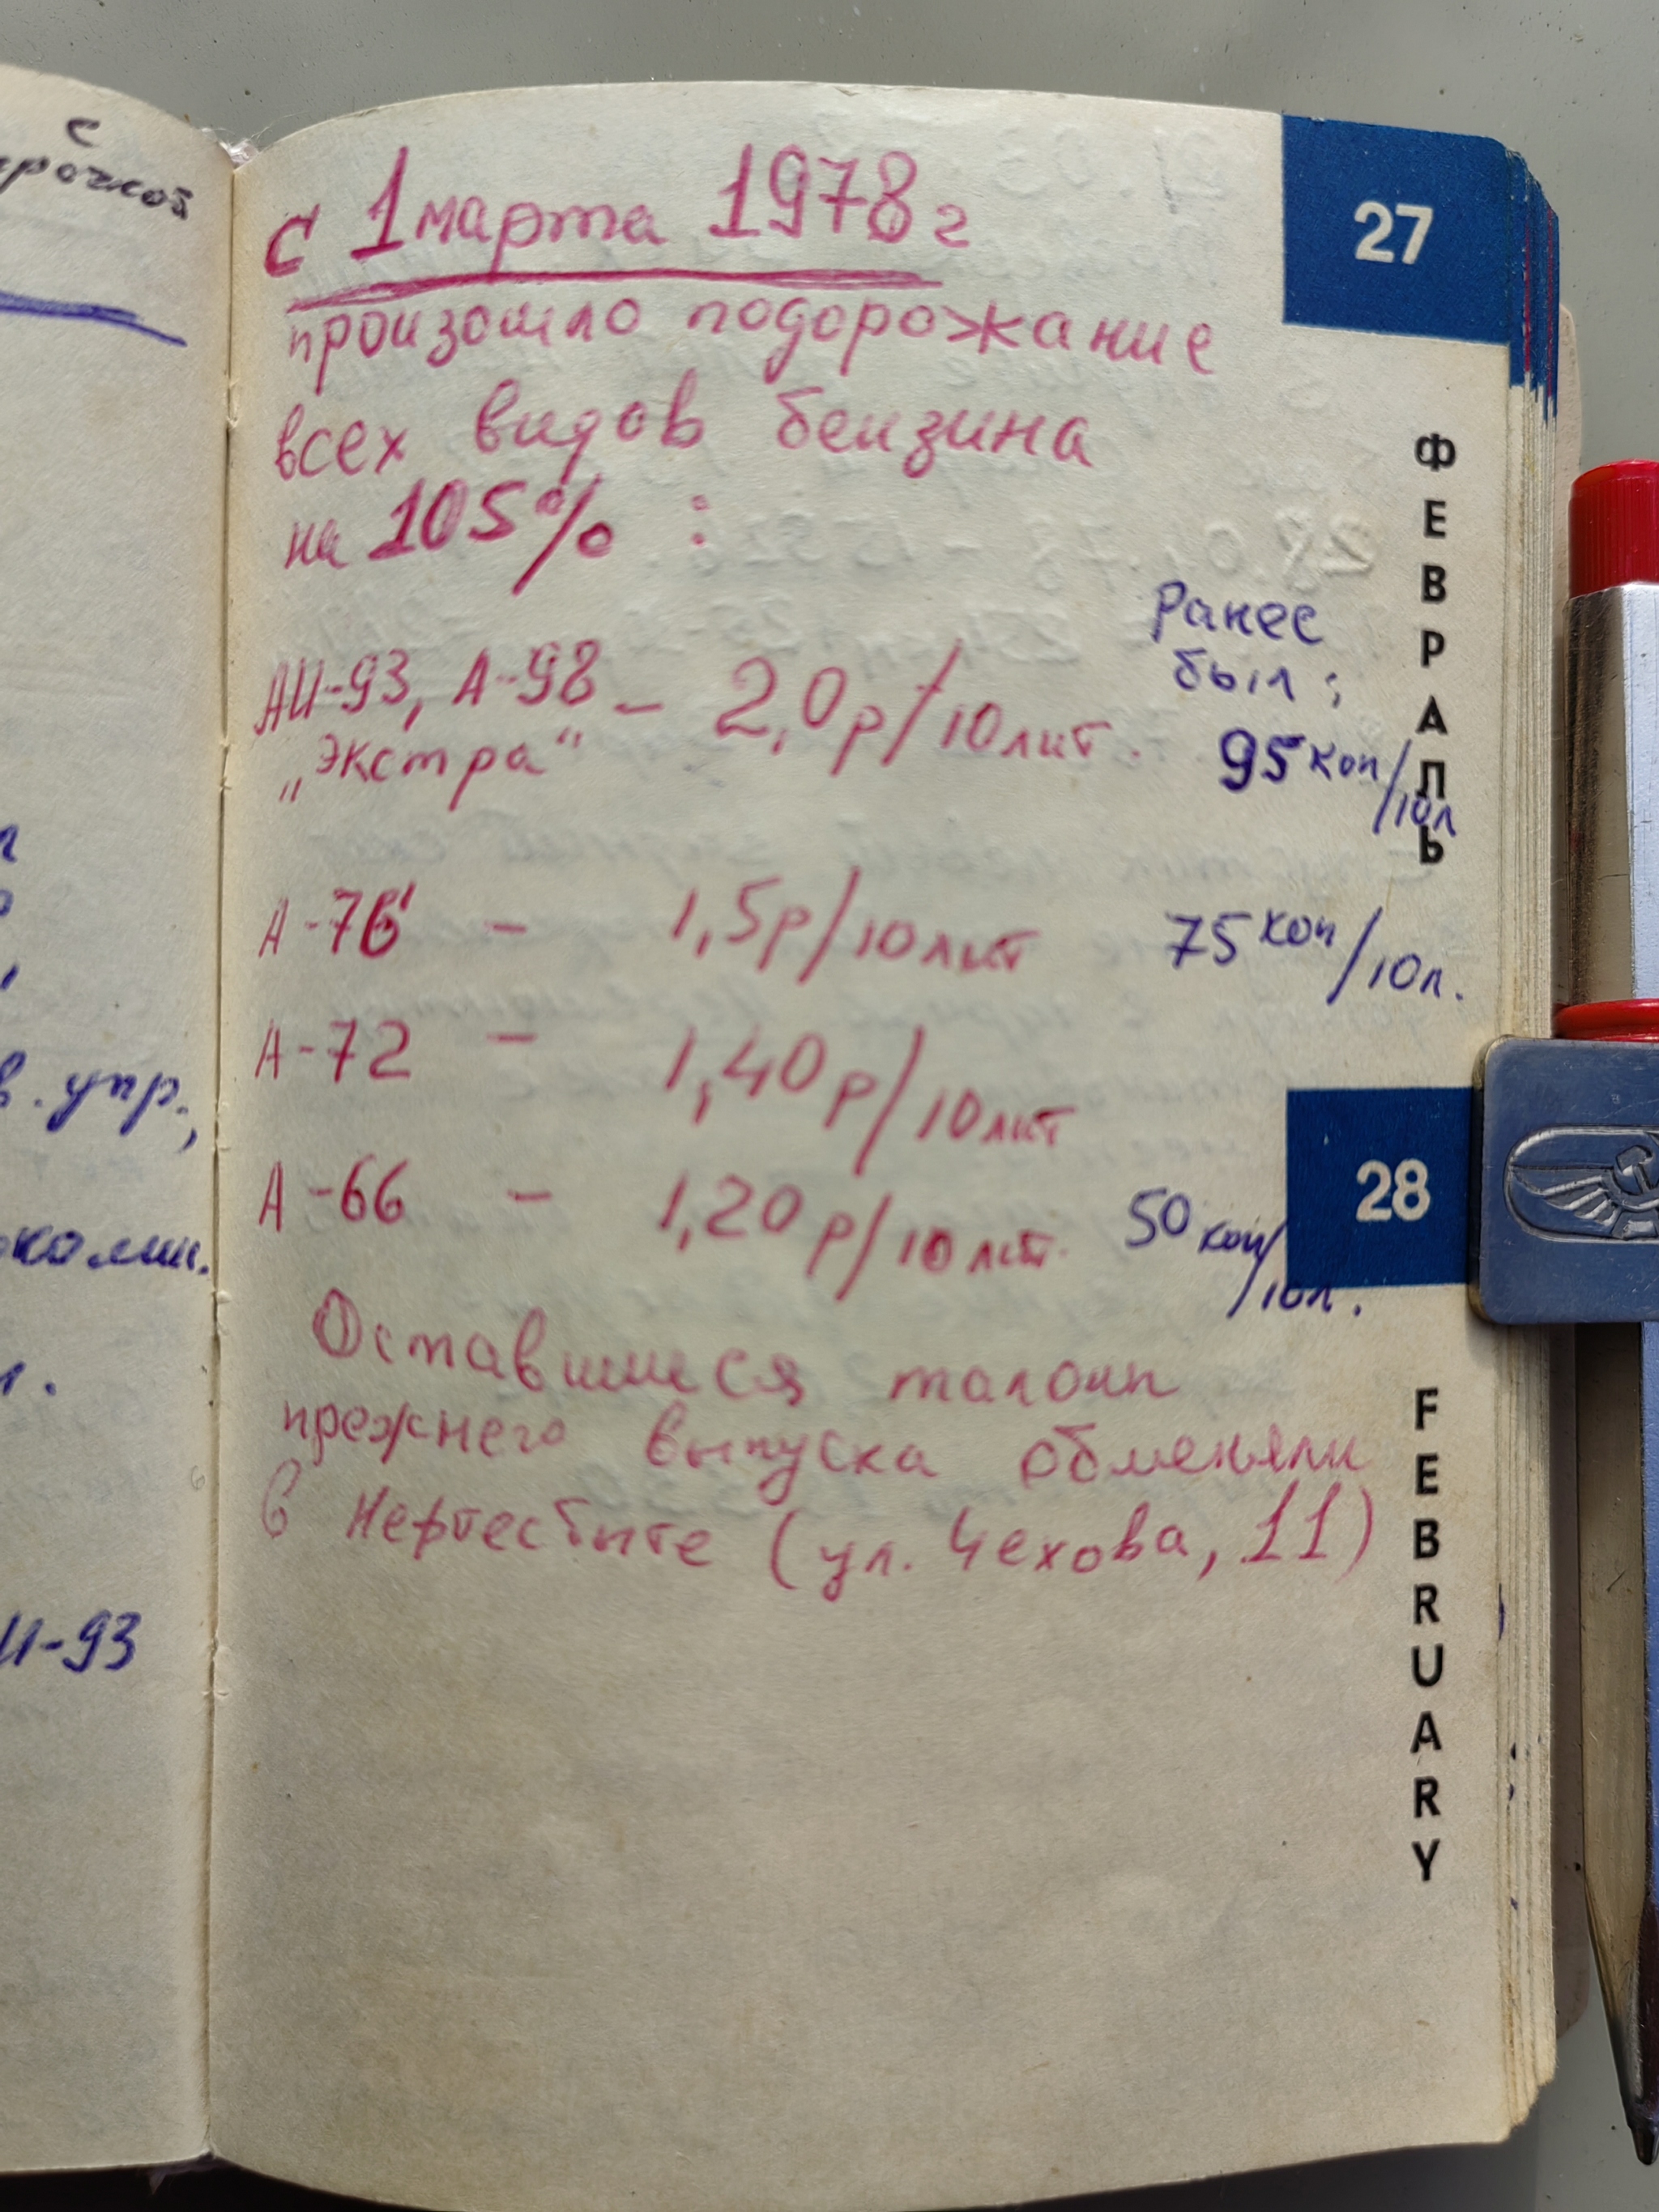 с
с 1 марта 1978 г
произошло подорожание
всех видов бензина
на 105% :
Ранее
был:
АИ-93, А-98 – 2,0 р/10 лит.
„Экстра“
95 коп/10л
А-76 – 1,5 р/10 лит
75 коп/10л.
А-72 – 1,40 р/10 лит
А-66 – 1,20 р/10 лит.
50 коп/10л.
Оставшиеся талоны
прежнего выпуска обменяли
в Нефтесбыте (ул. Чехова, 11)
27
ФЕВРАЛЬ
28
FEBRUARY
в. упр.,
И-93